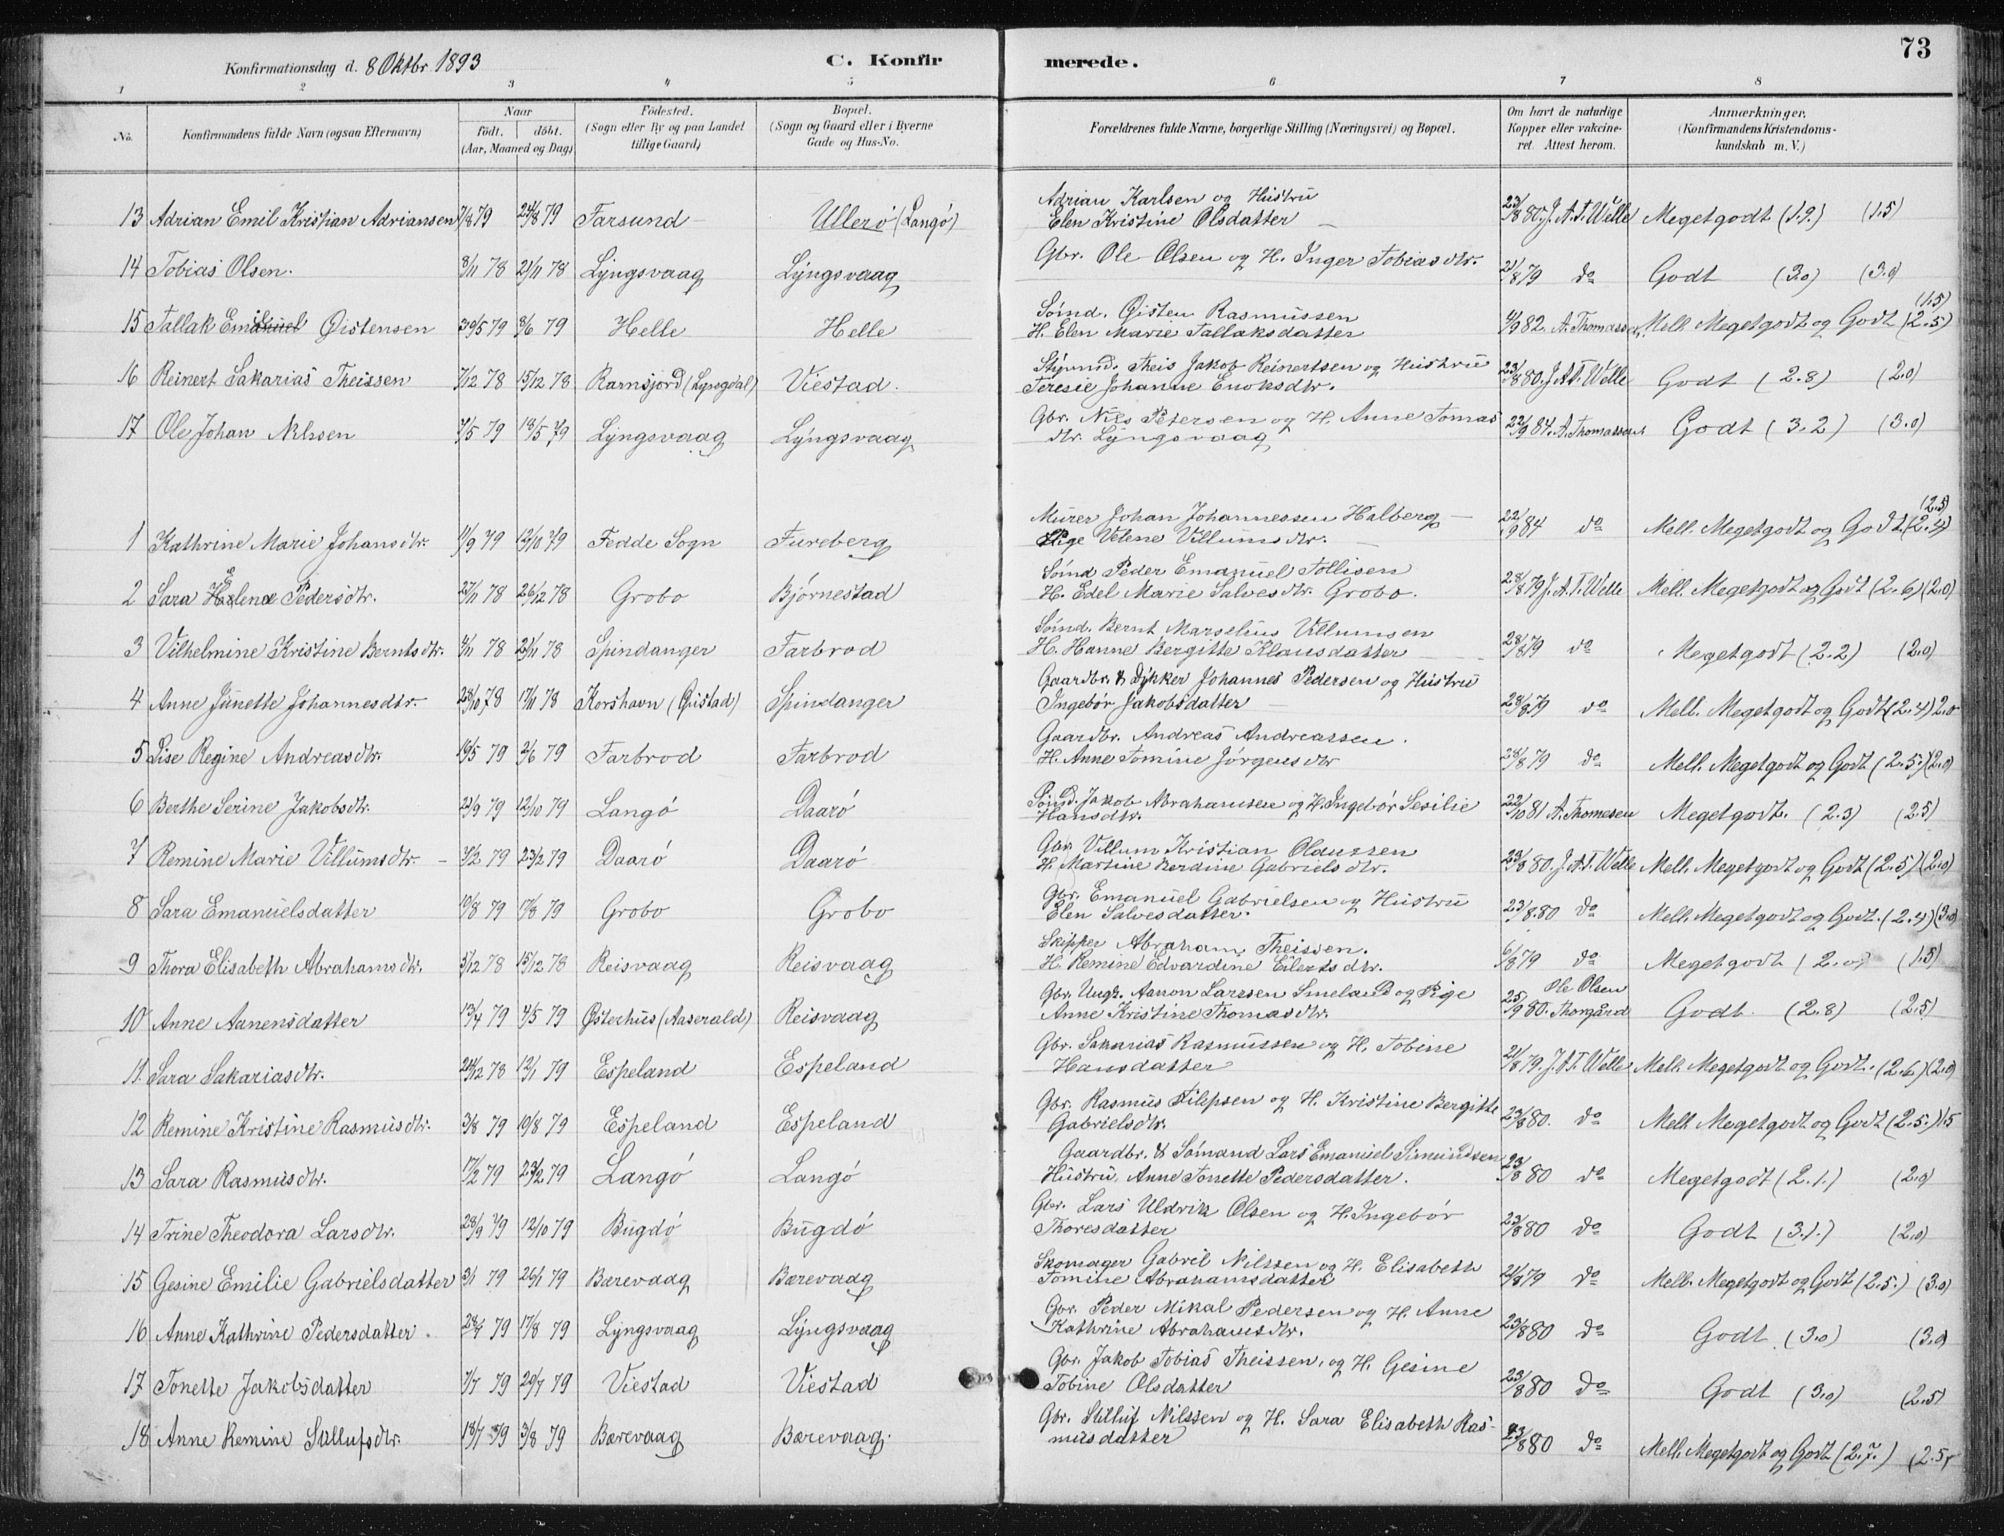 73
Konfirmationsdag d. 8 Oktbr 1893
C. Konfirmerede.
1 2 3 4 5 6 7 8
No. Konfirmandens fulde Navn (ogsaa Efternavn) Naar født. døbt. (Aar, Maaned og Dag) Fødested. (Sogn eller By og paa Landet tillige Gaard) Bopæl. (Sogn og Gaard eller i Byerne Gade og Hus-No. Forældrenes fulde Navne, borgerlige Stilling (Næringsvei) og Bopæl. Om havt de naturlige Kopper eller vakcineret. Attest herom. Anmærkninger. (Konfirmandens Kristendomskundskab m. V.)
13 Adrian Emil Kristian Adriansen 7/8 79 24/8 79 Farsund Ullerö (Langö) Adrian Karlsen og Hustru
Elen Kristine Olsdatter 23/8 80. J. A. T. Welle Megetgodt (1.9.) (1.5)
14 Tobias Olsen. 8/11 78 21/11 78 Lyngsvaag Lyngsvaag Gbr. Ole Olsen og H. Inger Tobiasdtr. 21/8 79 do Godt (3.0) (3.0)
15 Tallak Emanuel Øistensen 30/5 79 8/6 79 Helle Helle Sömd. Øisten Rasmussen
H. Elen Marie Tallaksdatter 4/9 82. A. Thomassen Mell. Megetgodt og Godt (2.5) (1.5)
16 Reinert Sakarias Theissen 7/12 78 15/12 78 Ramsjord (Lyngdal) Viestad. Styrmd. Theis Jakob Reinertsen og Hustru
Teresie Johanne Enoksdtr. 23/8 80. J. A. T. Welle Godt (2.8) (2.0)
17 Ole Johan Nilssen 7/5 79 18/5 79 Lyngsvaag Lyngsvaag Gbr. Nils Petersen og H. Anne Tomas
dtr. Lyngsvaag 22/9 84. A. Thomassen Godt (3.2) (3.0)
1 Kathrine Marie Johansdtr. 11/9 79 12/10 79 Fedde Sogn Fureberg Murer Johan Johannessen Halberg
Pige Velene Villumsdtr. 22/9 84 do Mell. Megetgodt og Godt (2.4) (2.5)
2 Sara Helene Pedersdtr. 27/11 78 26/12 78 Grobo Björnestad Sömd Peder Emanuel Tollisen
H. Edel Marie Salvesdtr. Grobo. 28/8 79 J. A. T. Welle Mell. Megetgodt og Godt (2.6) (2.0)
3 Vilhelmine Kristine Berntsdtr. 4/11 78 21/11 78 Spindanger Farbrod Sömd. Bernt Marselius Villumsen
H. Hanne Bergitte Klausdatter 28/8 79 do Megetgodt (2.2) (2.0)
4 Anne Junette Johannesdtr. 28/10 78 17/11 78 Korshavn (Øistad) Spindanger Gaardbr. & Dykker Johannes Pedersen og Hustru
Ingebör Jakobsdatter 28/8 79 do Mell. Megetgodt og Godt (2.4) 2.0
5 Lise Regine Andreasdtr. 19/5 79 2/6 79 Farbrod Farbrod Gaardbr. Andreas Andreassen.
H. Anne Tomine Jörgensdtr 28/8 79 do Mell. Megetgodt og Godt (2.5.) (2.0)
6 Berthe Serine Jakobsdtr. 21/9 79 12/10 79 Langö Daarö Sömd. Jakob Abrahamsen og H. Ingebör Sesilie
Hansdtr. 22/10 81 A. Thomesen Megetgodt. (2.3) (2.5)
7 Remine Marie Villumsdtr. 3/2 79 23/2 79 Daarö Daarö Gbr. Villum Kristian Olaussen
H. Martine Berdine Gabrielsdtr. 23/8 80. J. A. T. Welle Mell. Megetgodt og Godt (2.5) (2.0)
8 Sara Emanuelsdatter 10/8 79 17/8 79 Grobo Grobo Gbr. Emanuel Gabrielsen og Hustru
Elen Salvesdatter. 23/8 80 do Mell. Megetgodt og Godt. (2.4) (3.0)
9 Thora Elisabeth Abrahamsdtr. 5/12 78 15/12 78 Reisvaag Reisvaag Skipper Abraham Theissen.
H. Remine Edvardine Eilertsdtr. 6/8 79 do Megetgodt (2.0) (1.5)
10 Anne Aanensdatter 13/4 79 4/5 79 Østerhus (Aaserald) Reisvaag Gbr. Ungk. Aanon Larssen Smeland og Pige
Anne Kristine Thomasdtr. 25/9 80. Ole Olsen Thorgård Godt. (2.8) (2.5)
11 Sara Sakariasdtr. 24/12 78 12/1 79 Espeland Espeland Gbr. Sakarias Rasmussen og H. Tobine
Hansdatter 21/8 79. J. A. T. Welle Mell. Megetgodt og Godt. (2.6) (2.0)
12 Remine Kristine Rasmusdtr. 3/8 79 10/8 79 Espeland Espeland Gbr. Rasmus Filipsen og H. Kristine Bergitte
Gabrielsdtr. 23/8 80. do Mell. Megetgodt og Godt (2.5.) 1.5
13 Sara Rasmusdtr. 17/2 79 23/2 79 Langö Langö Gaardbr. & Sömand Lars Emanuel Simundsen
Hustru, Anne Tonette Pedersdatter. 23/8 80 do Megetgodt (2.1.) (2.0)
14 Trine Theodora Larsdtr. 28/9 79 12/10 79 Bugdö Bugdö Gbr. Lars Uldrik Olsen og H. Ingebör
Thoresdatter 23/8 80 do Godt (3.1.) (2.0)
15 Gesine Emilie Gabrielsdatter 3/1 79 26/1 79 Bærevaag Bærevaag Skomager Gabriel Nilssen og H. Elisabeth
Tomine Abrahamsdatter 21/8 79 do Mell. Megetgodt og Godt (2.5.) (3.0)
16 Anne Kathrine Pedersdatter. 28/7 79 17/8 79 Lyngsvaag Lyngsvaag Gbr. Peder Mikal Pedersen og H. Anne
Kathrine Abrahamsdtr. 23/8 80 do Godt (3.0) (3.0)
17 Tonette Jakobsdatter 7/7 79 20/7 79 Viestad Viestad Gbr. Jakob Tobias Theissen, og H. Gesine
Tobine Olsdatter 23/8 80 do Godt (3.0) (2.5)
18 Anne Remine Sallufsdtr. 18/7 79 3/8 79 Bærevaag Bærevaag. Gbr. Salluf Nilssen og H. Sara Elisabeth Ras-
musdatter 23/8 80 do Mell. Megetgodt og Godt (2.7.) (2.5)